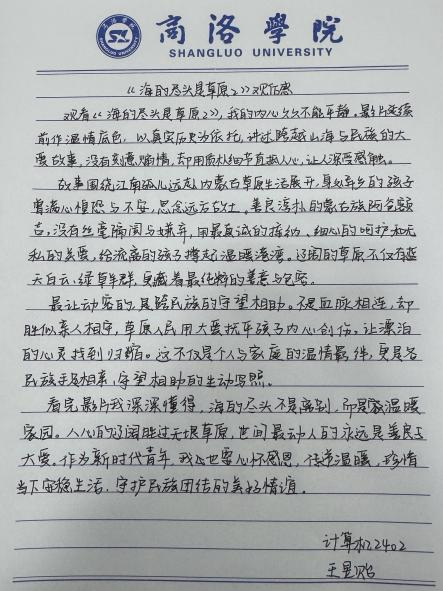 商洛學院
SHANGLUO UNIVERSITY
《海的尽头是草原2》观后感
观看《海的尽头是草原2》,我的内心久久不能平静。影片延续
前作温情底色,以真实历史为依托,讲述跨越山海与民族的大
爱故事,没有刻意煽情,却用质朴细节直抵人心,让人深受感触。
故事围绕江南孤儿远赴内蒙古草原生活展开,身处异乡的孩子
曾满心惶恐与不安,思念远方故土。善良淳朴的蒙古族阿爸额
吉,没有丝毫隔阂与嫌弃,用最真诚的接纳、细心的呵护和无
私的关爱,给流离的孩子撑起温暖港湾。辽阔的草原不仅有蓝
天白云、绿草羊群,更藏着最纯粹的善意与包容。
最让动容的是跨民族的守望相助。不是血脉相连,却
胜似亲人相守,草原人民用大爱抚平孩子内心创伤,让漂泊
的心灵找到归宿。这不仅是个人与家庭的温情羁绊,更是各
民族手足相亲、守望相助的生动写照。
看完影片我深深懂得,海的尽头不是离别,而是温暖
家园。人心的辽阔胜过无垠草原,世间最动人的永远是善良与
大爱。作为新时代青年,我们也要心怀感恩,传递温暖,珍惜
当下安稳生活,守护民族团结的美好情谊。
计算机2402
王昱